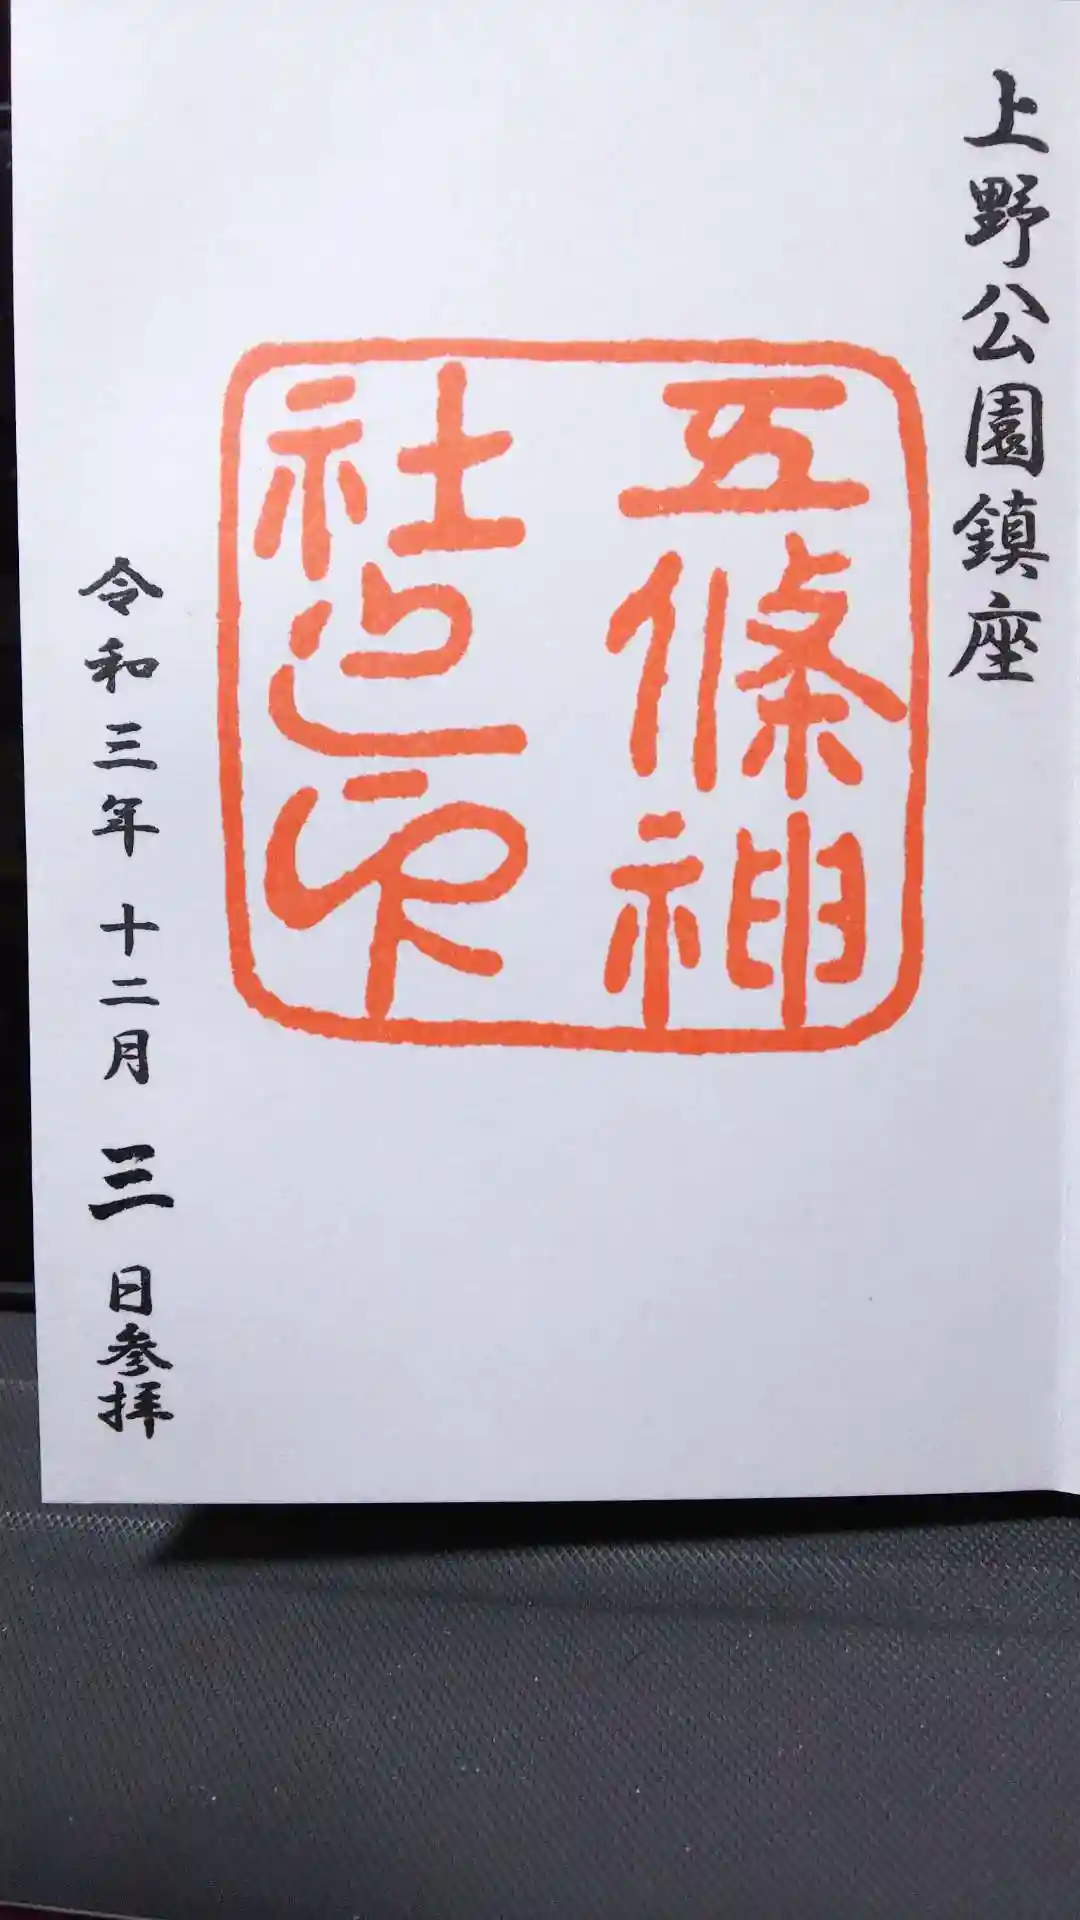 上野公園鎮座
五條神
社之印
令和三年十二月三日参拝